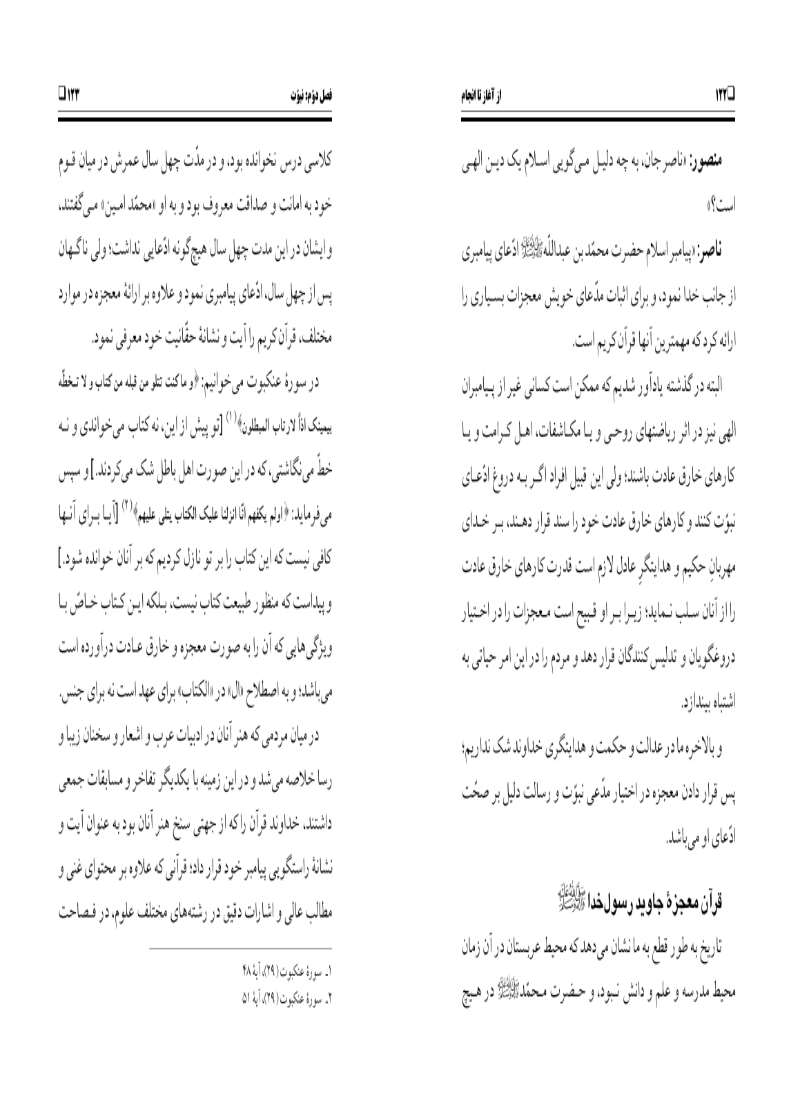 ❑۱۲۲ از آغاز تا انجام
منصور: «ناصر جان، به چه دلیل می‌گویی اسلام یک دین الهی
است؟»
ناصر: «پیامبر اسلام حضرت محمّد بن عبداللّه ﷺ ادّعای پیامبری
از جانب خدا نمود، و برای اثبات مدّعای خویش معجزات بسیاری را
ارائه کرد که مهمترین آنها قرآن کریم است.
البته در گذشته یادآور شدیم که ممکن است کسانی غیر از پیامبران
الهی نیز در اثر ریاضتهای روحی و یا مکاشفات، اهل کرامت و یا
کارهای خارق عادت باشند؛ ولی این قبیل افراد اگر به دروغ ادّعای
نبوّت کنند و کارهای خارق عادت خود را سند قرار دهند، بر خدای
مهربانِ حکیم و هدایتگرِ عادل لازم است قدرت کارهای خارق عادت
را از آنان سلب نماید؛ زیرا بر او قبیح است معجزات را در اختیار
دروغگویان و تدلیس‌کنندگان قرار دهد و مردم را در این امر حیاتی به
اشتباه بیندازد.
و بالاخره ما در عدالت و حکمت و هدایتگری خداوند شک نداریم؛
پس قرار دادن معجزه در اختیار مدّعی نبوّت و رسالت دلیل بر صحّت
ادّعای او می‌باشد.
قرآن معجزهٔ جاوید رسول‌خدا ﷺ
تاریخ به طور قطع به ما نشان می‌دهد که محیط عربستان در آن زمان
محیط مدرسه و علم و دانش نبود، و حضرت محمّد ﷺ در هیچ
فصل دوّم: نبوّت ۱۲۳ ❑
کلاسی درس نخوانده بود، و در مدّت چهل سال عمرش در میان قوم
خود به امانت و صداقت معروف بود و به او «محمّد امین» می‌گفتند،
و ایشان در این مدت چهل سال هیچ‌گونه ادّعایی نداشت؛ ولی ناگهان
پس از چهل سال، ادّعای پیامبری نمود و علاوه بر ارائهٔ معجزه در موارد
مختلف، قرآن کریم را آیت و نشانهٔ حقّانیت خود معرفی نمود.
در سورهٔ عنکبوت می‌خوانیم: ﴿و ما کنت تتلو من قبله من کتاب و لا تخطّه
بیمینک اذاً لارتاب المبطلون﴾(۱) [تو پیش از این، نه کتاب می‌خواندی و نه
خطّ می‌نگاشتی، که در این صورت اهل باطل شک می‌کردند.] و سپس
می‌فرماید: ﴿اولم یکفهم انّا انزلنا علیک الکتاب یتلی علیهم﴾(۲) [آیا برای آنها
کافی نیست که این کتاب را بر تو نازل کردیم که بر آنان خوانده شود.]
و پیداست که منظور طبیعت کتاب نیست، بلکه این کتاب خاصّ با
ویژگی‌هایی که آن را به صورت معجزه و خارق عادت درآورده است
می‌باشد؛ و به اصطلاح «ال» در «الکتاب» برای عهد است نه برای جنس.
در میان مردمی که هنر آنان در ادبیات عرب و اشعار و سخنان زیبا و
رسا خلاصه می‌شد و در این زمینه با یکدیگر تفاخر و مسابقات جمعی
داشتند، خداوند قرآن را که از جهتی سنخ هنر آنان بود به عنوان آیت و
نشانهٔ راستگویی پیامبر خود قرار داد؛ قرآنی که علاوه بر محتوای غنی و
مطالب عالی و اشارات دقیق در رشته‌های مختلف علوم، در فصاحت
۱ـ سورهٔ عنکبوت (۲۹)، آیهٔ ۴۸
۲ـ سورهٔ عنکبوت (۲۹)، آیهٔ ۵۱